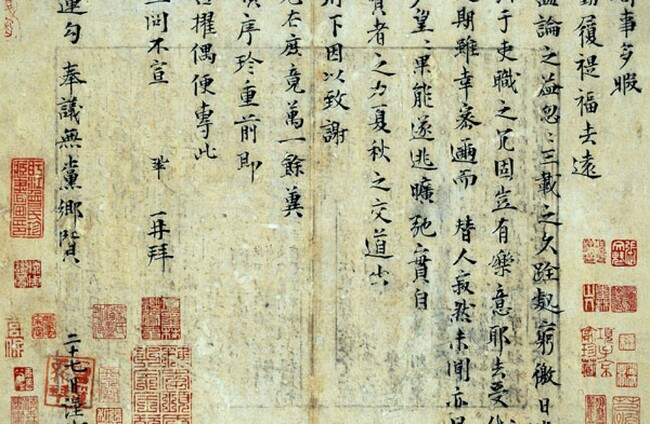 事多暇
動履禔福去遠
誨論之益忽〻三載之久跧處窮徼日
汩于吏職之冗固豈有樂意耶去受代
之期雖幸密邇而替人寂然未聞亦旦
夕望〻果能遂逃曠弛實自
賢者之力夏秋之交道出
府下因以致謝
左右庶竟萬一餘冀
順序珍重前即
召擢偶便專此
上問不宣 鞏 再拜
運勾奉議無黨鄉賢
二十七日謹